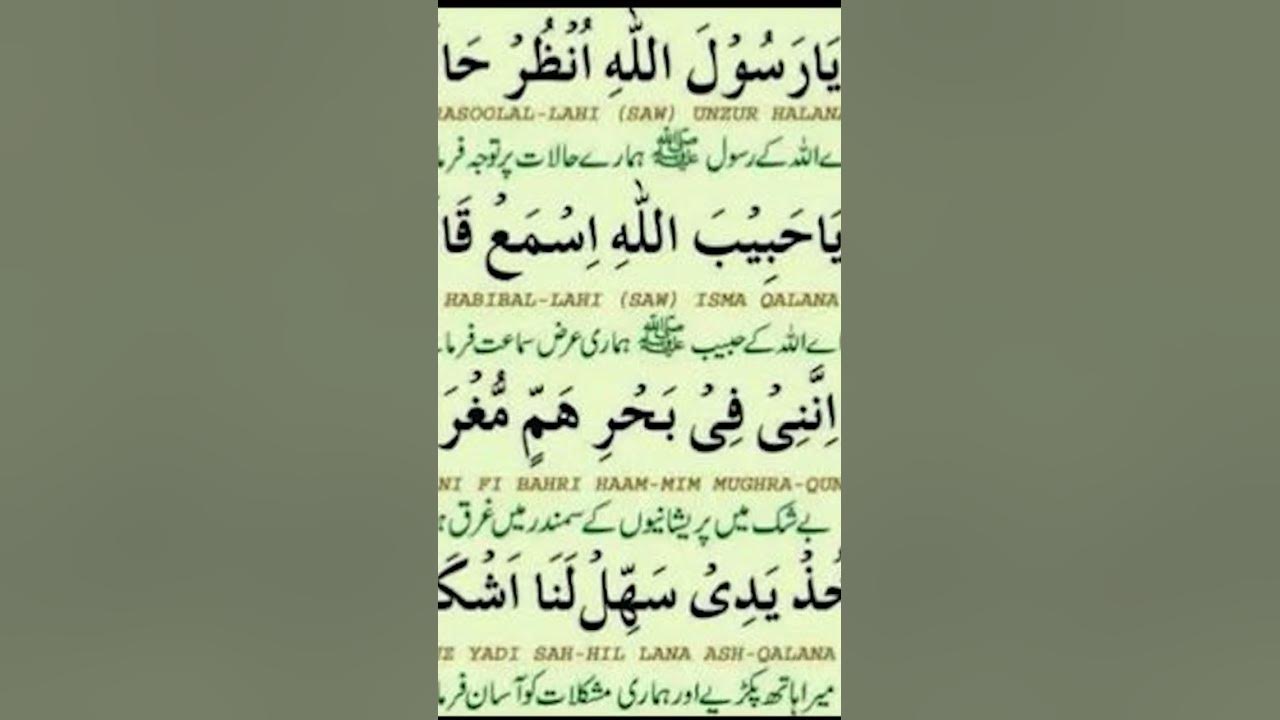 يَارَسُوْلَ اللّٰهِ اُنْظُرْ حَا
RASOOLAL-LAHI (SAW) UNZUR HALANA
اے اللہ کے رسول ﷺ ہمارے حالات پر توجہ فرما
يَاحَبِيْبَ اللّٰهِ اِسْمَعْ قَا
HABIBAL-LAHI (SAW) ISMA QALANA
اے اللہ کے حبیب ﷺ ہماری عرض سماعت فرما
اِنَّنِىْ فِىْ بَحْرِ هَمٍّ مُّغْرَ
NI FI BAHRI HAAM-MIM MUGHRA-QUN
بے شک میں پریشانیوں کے سمندر میں غرق ہ
خُذْ يَدِىْ سَهِّلْ لَنَا اَشْكَ
ZE YADI SAH-HIL LANA ASH-QALANA
میرا ہاتھ پکڑیے اور ہماری مشکلات کو آسان فرما